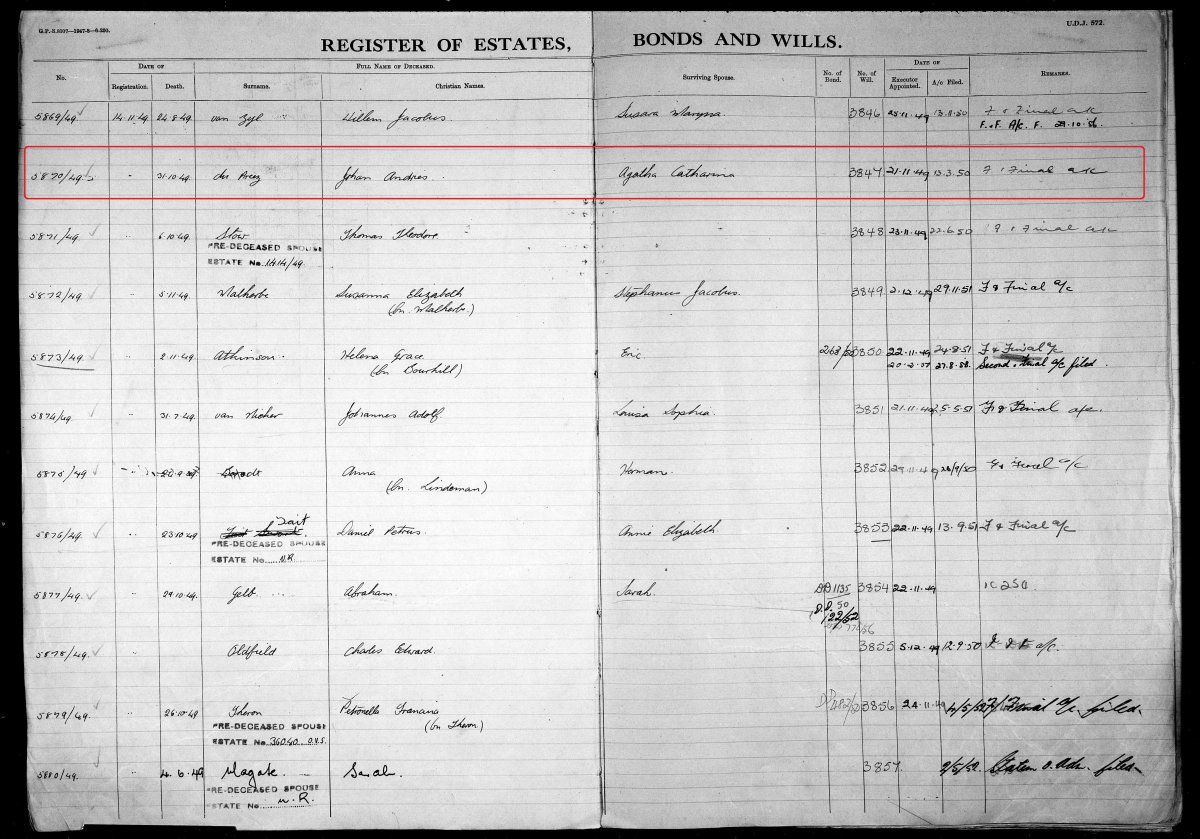 G.P.-S.8007—1947-8—6-250.
U.D.J. 572.
REGISTER OF ESTATES, BONDS AND WILLS.
No. DATE OF FULL NAME OF DECEASED. Surviving Spouse. No. of Bond. No. of Will. DATE OF REMARKS.
Registration. Death. Surname. Christian Names. Executor Appointed. A/c Filed.
5869/49 14.11.49 24.8.49 van Zyl Willem Jacobus. Susara 3846 25.11.49 13.11.50 F & Final a/c
F. & F. A/c. F. 29.10.56.
5870/49 " 31.10.49 du Preez Johan Andres. Agatha Catharina 3847 21.11.49 13.3.50 F & Final a/c
5871/49 " 6.10.49 Stow Thomas Theodore. 3848 23.11.49 22.6.50 F & Final a/c
PRE-DECEASED SPOUSE
ESTATE No. 1414/49.
5872/49 " 5.11.49 Malherbe Susanna Elizabeth Stephanus Jacobus. 3849 2.12.49 29.11.51 F & Final a/c
(bn. Malherbe.)
5873/49 " 2.11.49 Atkinson. Helena Grace Eric. 3850 22.11.49 24.8.51 F & Final a/c
(bn Bourhill) 27.8.58. Second & final a/c filed.
5874/49 " 31.7.49 van Johannes Adolf Louisa Sophia. 3851 21.11.49 5.5.51 F & Final a/c.
5875/49 Anna Herman. 3852 F & Final a/c
(bn. Lindeman)
Tait
5876/49 " 23.10.49 Daniel Petrus. Annie Elizabeth 3853 22.11.49 13.9.51 F & Final a/c
PRE-DECEASED SPOUSE
ESTATE No.
5877/49 " 29.10.49 Gelb Abraham. Sarah. 1135 3854 22.11.49
D.D. 50
122/52
5878/49. Oldfield Charles Edward. 3855 5.12.49 12.9.50 a/c.
5879/49. " 26.10.49 Theron Petronella Francina 3856 24.11.49 Final a/c filed.
(bn Theron.)
PRE-DECEASED SPOUSE
ESTATE No. 36040 O.V.S.
5880/49. " 4.6.49 Magate. Sarah. 3857. 2/5/52. filed.
PRE-DECEASED SPOUSE
ESTATE No. N.R.